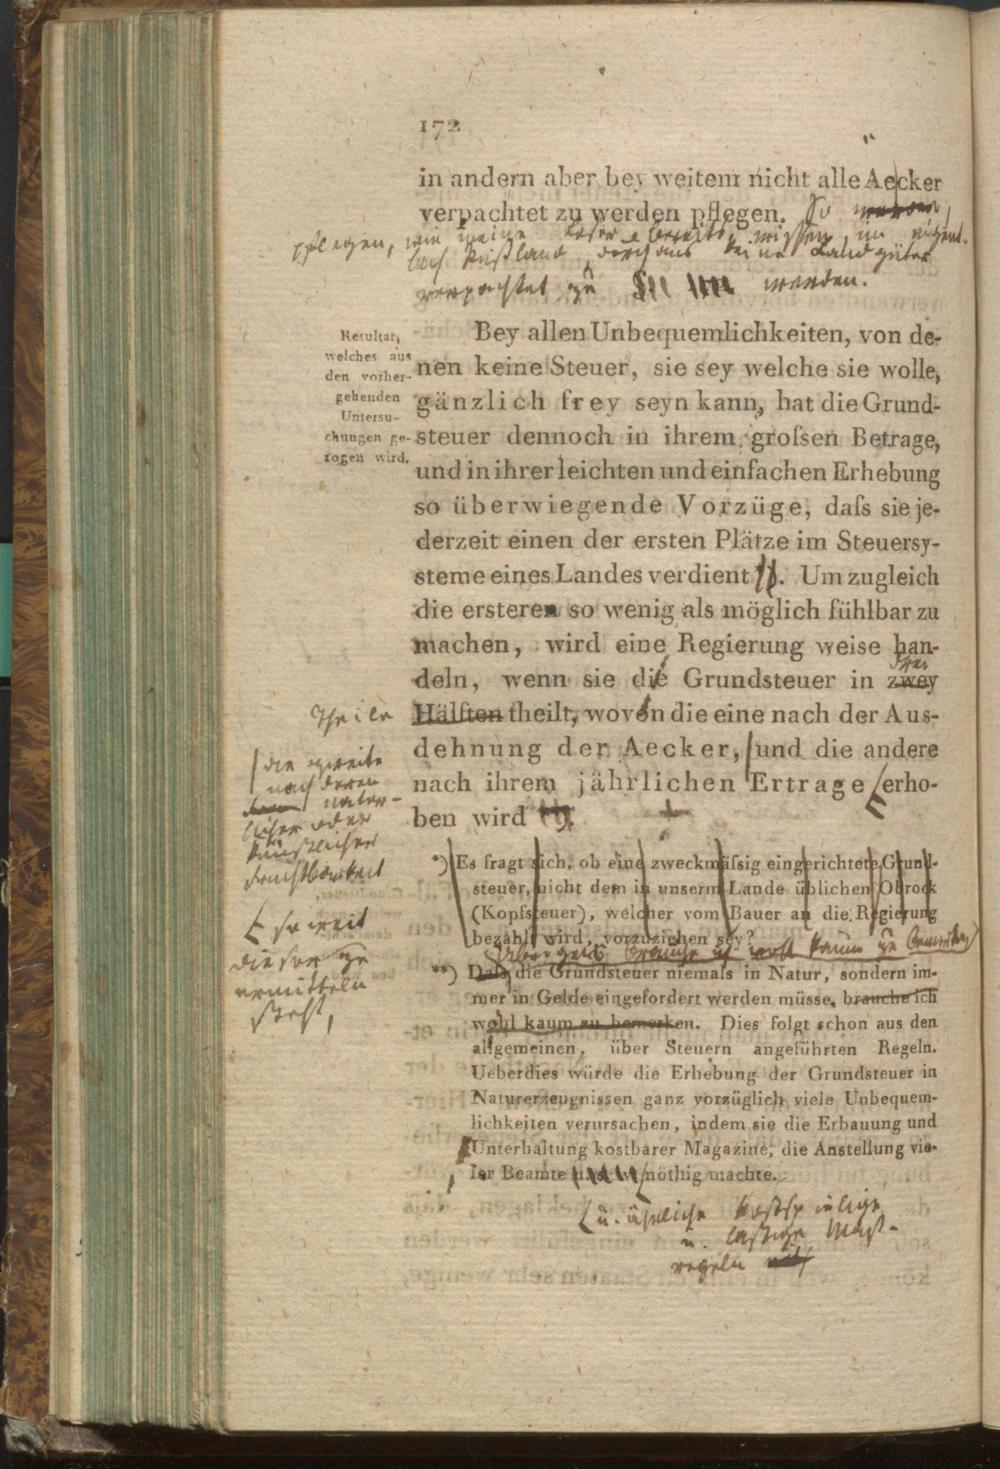 172
in andern aber bey weitem nicht alle Aecker
verpachtet zu werden pflegen. So werden
pflegen, wie meine Leser bereits wissen, im eigent-
lich Rußland durchaus keine Landgüter
verpachtet zu werden.
Resultat,
welches aus
den vorher-
gehenden
Untersu-
chungen ge-
zogen wird.
Bey allen Unbequemlichkeiten, von de-
nen keine Steuer, sie sey welche sie wolle,
gänzlich frey seyn kann, hat die Grund-
steuer dennoch in ihrem groſsen Betrage,
und in ihrer leichten und einfachen Erhebung
so überwiegende Vorzüge, daſs sie je-
derzeit einen der ersten Plätze im Steuersy-
steme eines Landes verdient. Um zugleich
die ersteren so wenig als möglich fühlbar zu
machen, wird eine Regierung weise han-
drei
deln, wenn sie die Grundsteuer in zwey
Theile
Hälften theilt, wovon die eine nach der Aus-
dehnung der Aecker, und die andere
nach ihrem jährlichen Ertrage erho-
ben wird
die zweite
nach deren
natür-
licher oder
künstlicher
Fruchtbarkeit
so weit
dieser zu
ermitteln
steht,
*) Es fragt sich, ob eine zweckmäſsig eingerichtete Grund-
steuer, nicht dem in unserm Lande üblichen Obrock
(Kopfsteuer), welcher vom Bauer an die Regierung
bezahlt wird, vorzuziehen sey?
brauche ich wohl kaum zu bemerken
**) Daſs die Grundsteuer niemals in Natur, sondern im-
mer in Gelde eingefordert werden müsse, brauche ich
wohl kaum zu bemerken. Dies folgt schon aus den
allgemeinen, über Steuern angeführten Regeln.
Ueberdies würde die Erhebung der Grundsteuer in
Naturerzeugnissen ganz vorzüglich viele Unbequem-
lichkeiten verursachen, indem sie die Erbauung und
Unterhaltung kostbarer Magazine, die Anstellung vie-
ler Beamte u. s. w. nöthig machte.
u. ähnliche kostspielige
u. lästige Maß-
regeln